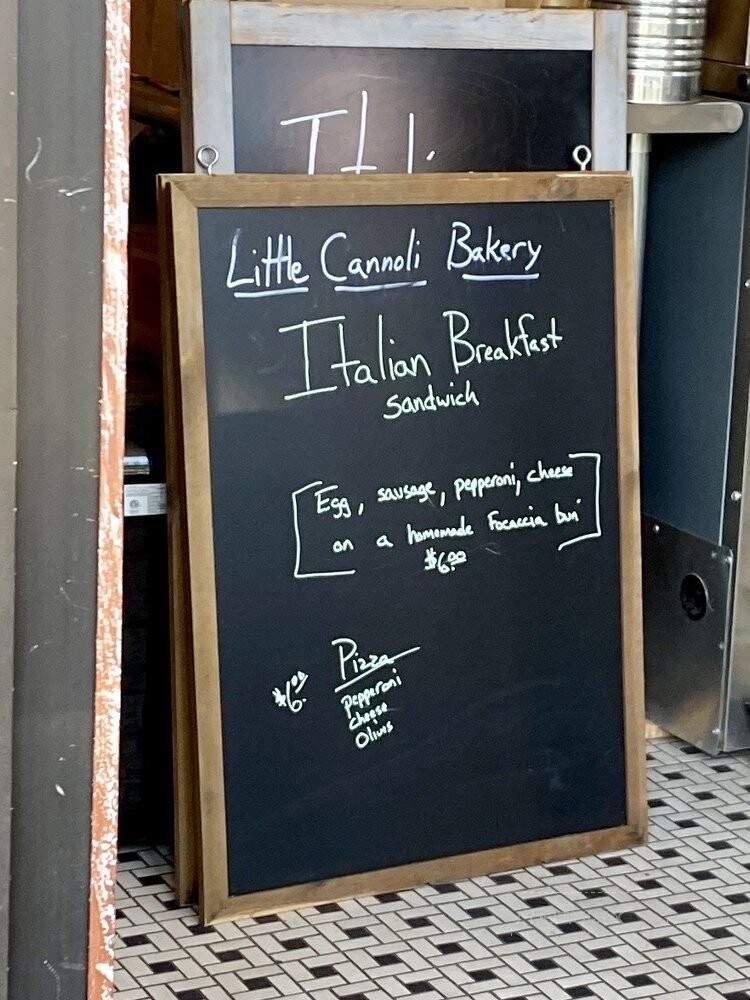 Little Cannoli Bakery
Italian Breakfast
Sandwich
Egg, sausage, pepperoni, cheese
on a homemade Focaccia bun
$6.00
$6.00
Pizza
pepperoni
cheese